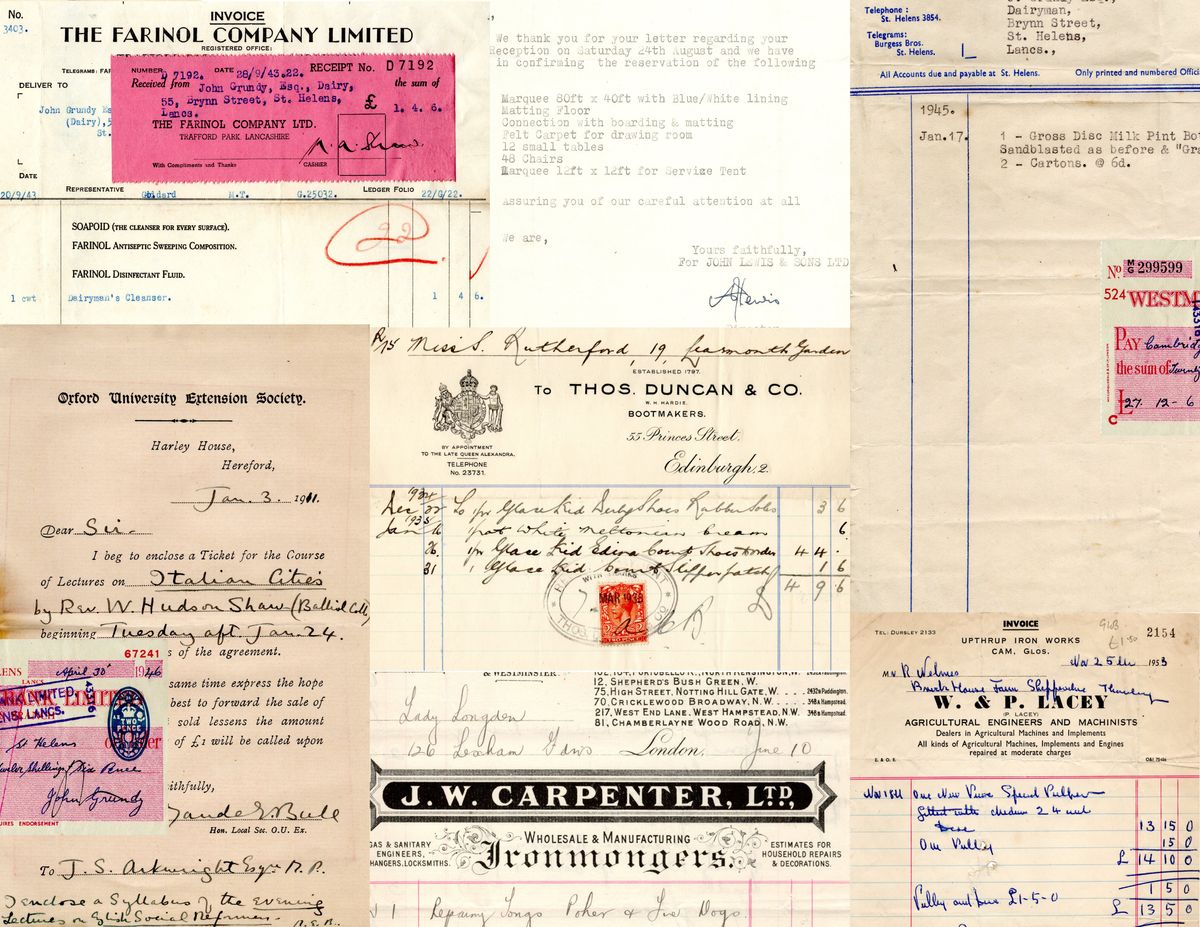 No.
3403.
INVOICE
THE FARINOL COMPANY LIMITED
REGISTERED OFFICE:
TELEGRAMS: FAR
DELIVER TO
John Grundy Es
(Dairy),5
St.
DATE
NUMBER D 7192. DATE 28/9/43.22. RECEIPT No. D 7192
Received from John Grundy, Esq., Dairy, the sum of
55, Brynn Street, St. Helens,
Lancs.
£ 1. 4. 6.
THE FARINOL COMPANY LTD.
TRAFFORD PARK, LANCASHIRE
With Compliments and Thanks CASHIER
REPRESENTATIVE LEDGER FOLIO
20/9/43 Goddard M.T. G.25032. 22/G/22.
22
SOAPOID (THE CLEANSER FOR EVERY SURFACE).
FARINOL ANTISEPTIC SWEEPING COMPOSITION.
FARINOL DISINFECTANT FLUID.
1 cwt Dairyman's Cleanser. 1 4 6.
We thank you for your letter regarding your
Reception on Saturday 24th August and we have
in confirming the reservation of the following
Marquee 80ft x 40ft with Blue/White lining
Matting Floor
Connection with boarding & matting
Felt Carpet for drawing room
12 small tables
48 Chairs
Marquee 12ft x 12ft for Service Tent
Assuring you of our careful attention at all
We are,
Yours faithfully,
For JOHN LEWIS & SONS LTD
Telephone :
St. Helens 3854.
Telegrams:
Burgess Bros.
St. Helens.
Dairyman,
Brynn Street,
St. Helens,
Lancs.,
All Accounts due and payable at St. Helens. Only printed and numbered Offici
1945.
Jan.17. 1 - Gross Disc Milk Pint Bo
Sandblasted as before & "Gra
2 - Cartons. @ 6d.
No M/G 299599
524 WESTM
PAY Cambrid
the sum of Twenty
£27-12-6
C
Oxford University Extension Society.
Harley House,
Hereford,
Jan. 3. 1911.
Dear Sir.
I beg to enclose a Ticket for the Course
of Lectures on Italian Cities
by Rev. W. Hudson Shaw (Balliol Coll)
beginning Tuesday aft. Jan. 24.
s of the agreement.
same time express the hope
best to forward the sale of
sold lessens the amount
of £1 will be called upon
ithfully,
Hon. Local Sec. O.U. Ex.
To J. S. Arkwright Esqre M.P.
I enclose a Syllabus of the evening
Lectures on English Social Reformers.
67241
ENS April 30 1946
LANCS
BANK LIMITE
TWO
PENCE
St Helens
Twelve Shillings & Six Pence
John Grundy
UIRES ENDORSEMENT
Miss S. Rutherford, 19, Learmonth Garden
ESTABLISHED 1797.
TO THOS. DUNCAN & CO.
W. H. HARDIE.
BOOTMAKERS.
55 Princes Street.
Edinburgh, 2.
BY APPOINTMENT
TO THE LATE QUEEN ALEXANDRA.
TELEPHONE
No. 23731.
1934
Dec To pr Glace Kid Derby Shoes Rubber Soles 3 6
1935
Jan 16 1 pot White Meltonian Cream 6.
26 1 pr Glace Kid Edina Court Shoes 44 -
31 1 Glace Kid Court Slipper patch 1 6
£ 4 9 6
MAR 1935
& WESTMINSTER
12, SHEPHERD'S BUSH GREEN, W.
75, HIGH STREET, NOTTING HILL GATE, W. . . . . 2432a Paddington.
70, CRICKLEWOOD BROADWAY, N.W. . . . . 348a Hampstead.
217, WEST END LANE, WEST HAMPSTEAD, N.W. 348a Hampstead.
81, CHAMBERLAYNE WOOD ROAD, N.W.
Lady Longden
126 Lexham Gdns London, June 10
J. W. CARPENTER, LTD.,
WHOLESALE & MANUFACTURING
Ironmongers.
GAS & SANITARY
ENGINEERS,
HANGERS, LOCKSMITHS.
ESTIMATES FOR
HOUSEHOLD REPAIRS
& DECORATIONS.
Repairing Tongs Poker & Fire Dogs.
INVOICE
TEL: DURSLEY 2133
UPTHRUP IRON WORKS
CAM, GLOS.
2154
£1.50
Nov 25th 1953
Mr R Welmes
W. & P. LACEY
(P. LACEY)
AGRICULTURAL ENGINEERS AND MACHINISTS
Dealers in Agricultural Machines and Implements
All kinds of Agricultural Machines, Implements and Engines
repaired at moderate charges
E. & O. E.
Nov 18th One New
13 15 0
One Pulley 15 0
£ 14 10 0
1 5 0
Pulley and £1-5-0
£ 13 5 0